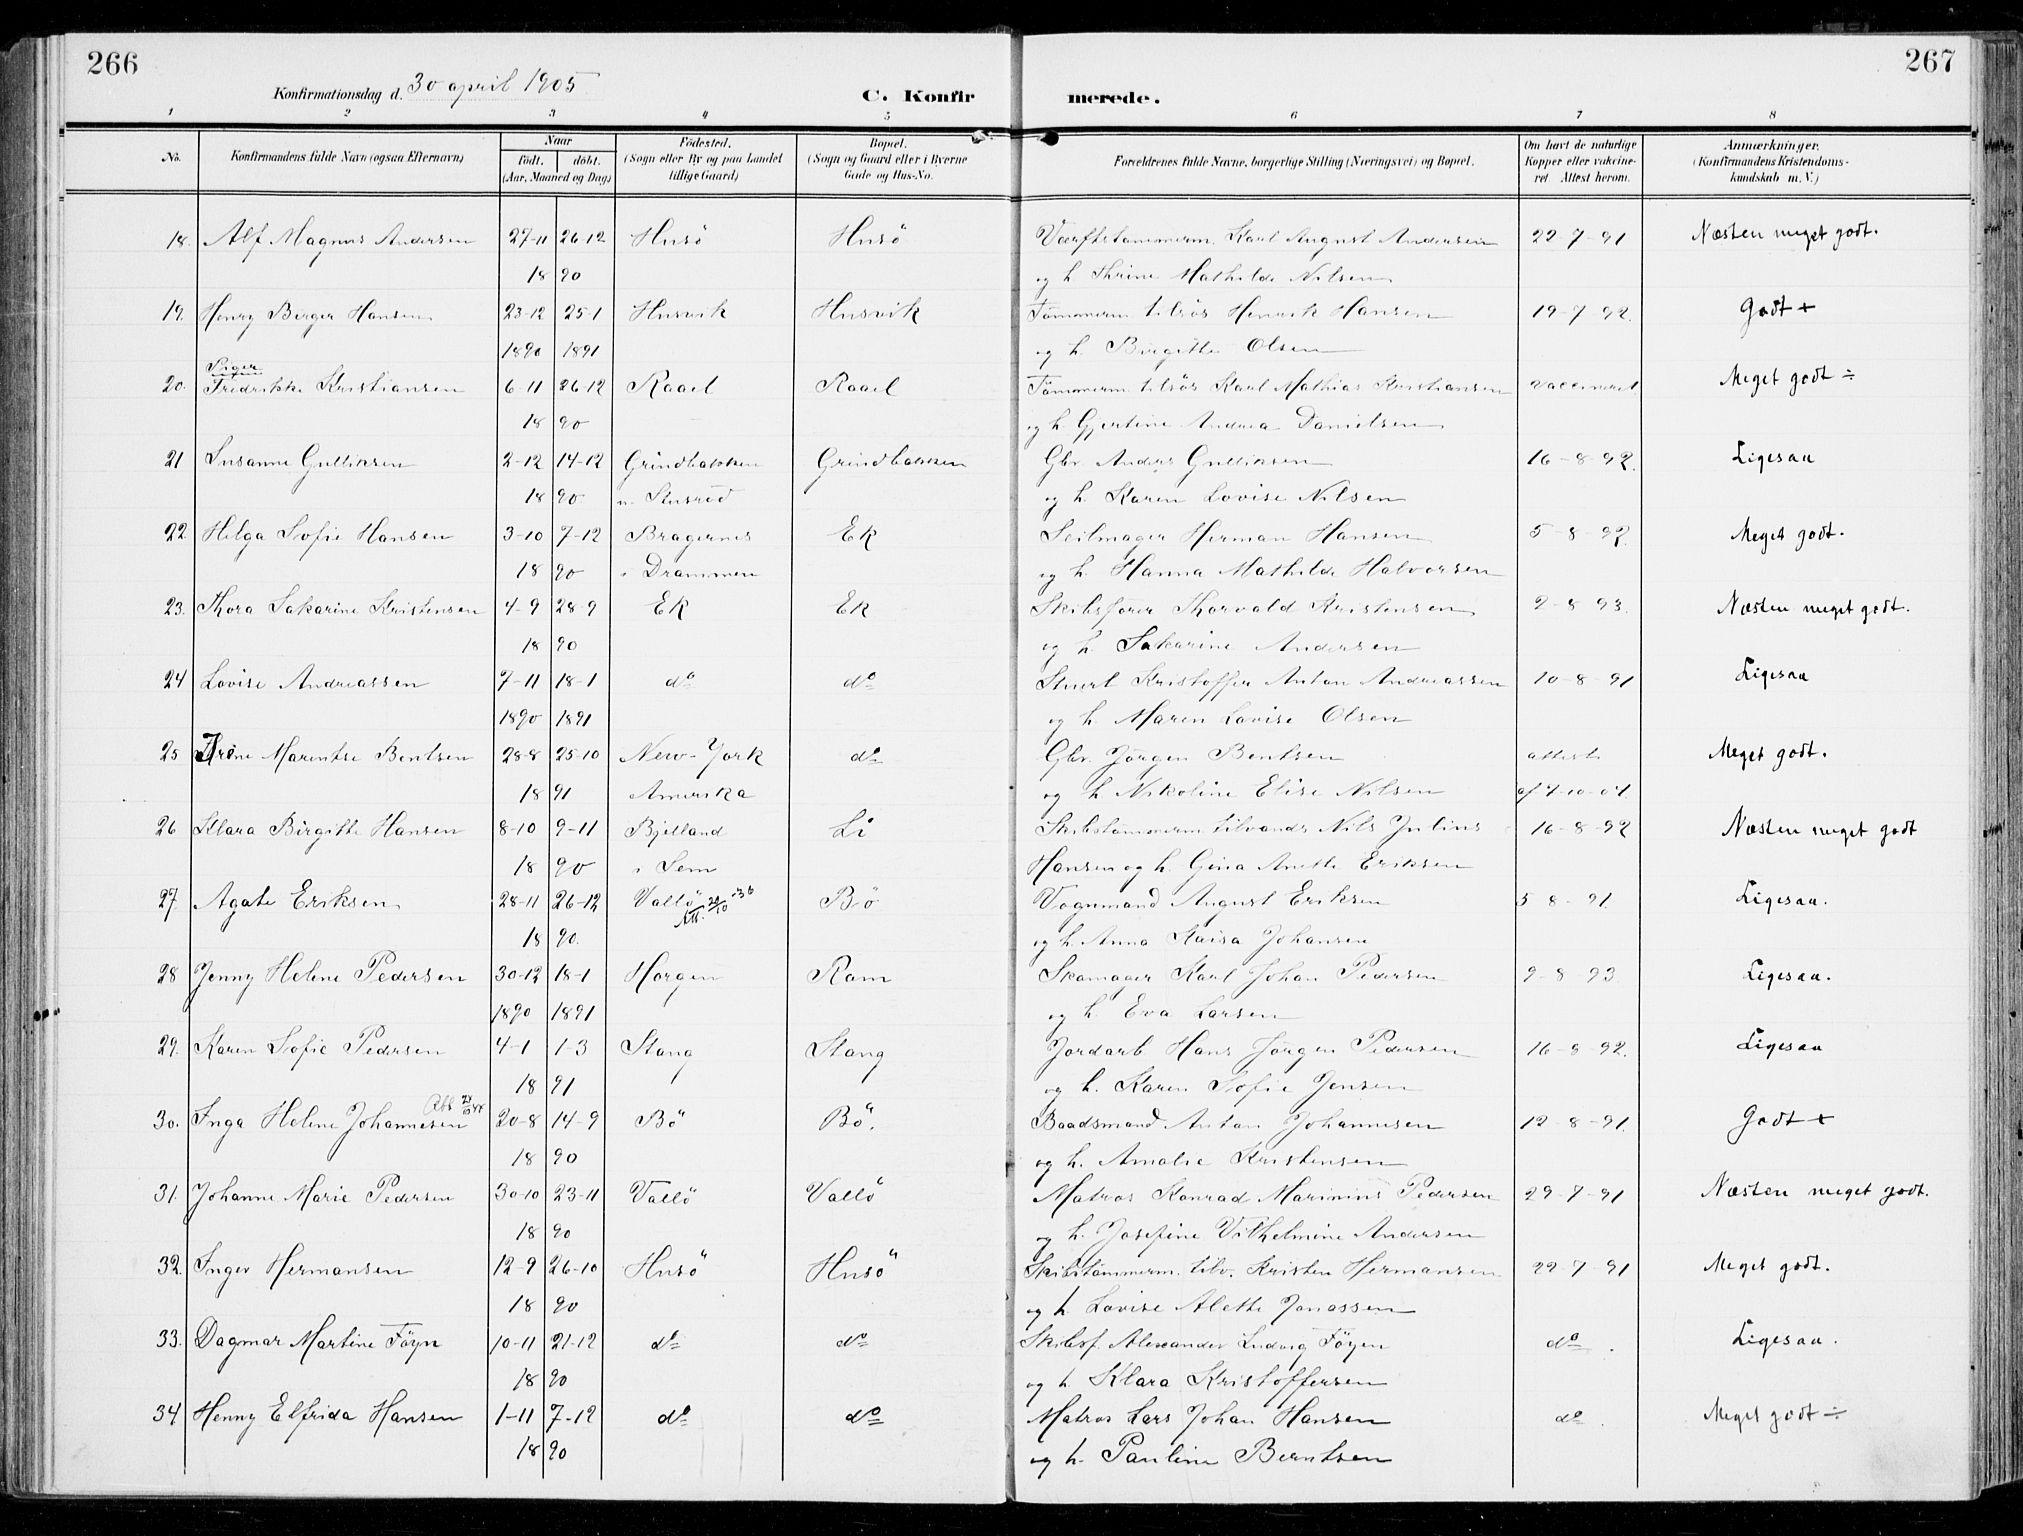 266
267
Konfirmationsdag d. 30 april 1905
C. Konfirmerede.
1 2 3 4 5 6 7 8
No. Konfirmandens fulde Navn (ogsaa Efternavn) Naar født. døbt. (Aar, Maaned og Dag) Fødested. (Sogn eller By og paa Landet tillige Gaard) Bopæl. (Sogn og Gaard eller i Byerne Gade og Hus-No. Forældrenes fulde Navne, borgerlige Stilling (Næringsvei) og Bopæl. Om havt de naturlige Kopper eller vakcineret. Attest herom. Anmærkninger. (Konfirmandens Kristendomskundskab m. V.)
18. Alf Magnus Andersen 27-11 26-12 Husö Husö Værftstömmerm. Karl August Andersen 22-7-91 Næsten meget godt.
18 90 og h. Thrine Mathilde Nilsen
19. Henry Birger Hansen 23-12 25-1 Husvik Husvik Tömmerm. tilsös Henrik Hansen 19-7 92. Godt +
1890 1891 og h. Birgitte Olsen
Piger
20. Fredrikke Kristiansen 6-11 26-12 Raael Raael Tömmerm. tilsös Karl Mathias Kristiansen vaccineret Meget godt ÷
18 90 og h. Gjertine Andrea Danielsen
21 Susanne Gulliksen 2-12 14-12 Grindbakken Grindbakken Gbr. Anders Gulliksen 16-8-92. Ligesaa
18 90 og h. Karen Lovise Nilsen
22 Helga Sofie Hansen 3-10 7-12 Bragernes Ek Seilmager Herman Hansen 5-8-92. Meget godt.
18 90 i Drammen og h. Hanna Mathilde Halvorsen
23. Thora Sakarine Kristensen 4-9 28-9 Ek Ek Skibsförer Thorvald Kristensen 9-8 93. Næsten meget godt.
18 90 og h. Sakarine Andersen
24 Lovise Andreassen 7-11 18-1 do do Stuert Kristoffer Anton Andreassen 10-8-91 Ligesaa
1890 1891 og h. Maren Lovise Olsen
25 Marentse Bentsen 28-8 25-10 New-York do Gbr. Jörgen Bentsen attest Meget godt.
18 91 Amerika og h Nikoline Elise Nilsen af 4-10-04.
26 Klara Birgitte Hansen 8-10 9-11 Bjelland Li Skibstömmerm. tilvands Nils Julius 16-8-92 Næsten meget godt
18 90 i Sem Hansen og h. Gina Anette Eriksen
27. Agate Eriksen 28-11 26-12 Vallö Bö Vognmand August Eriksen 5 8-91. Ligesaa.
18 90. og h. Anna Kaisa Johansen
28 Jenny Helene Pedersen 30-12 18-1 Horgen Ram Skomager Karl Johan Pedersen 9-8 93 Ligesaa.
1890 1891 og h. Eva Larsen
29. Karen Sofie Pedersen 4-1 1-3 Stang Stang Jordarb Hans Jörgen Pedersen 16-8-92. Ligesaa
18 91 og h. Karen Sofie Jensen
30. Inga Helene Johannesen 20-8 14-9 Bö Bö. Baadsmand Anton Johannesen 12-8-91. Godt +
18 90 og h. Amalie Kristensen
31. Johanne Marie Pedersen 30-10 23-11 Vallö Vallö Matros Konrad Marinius Pedersen 29-7-91 Næsten meget godt.
18 90 og h. Josefine Vilhelmine Andersen
32. Inger Hermansen 12-9 26-10 Husö Husö Skibstömmerm. tilv. Kristen Hermansen 22-7-91 Meget godt.
18 90 og h. Lovise Alette Jonassen
33. Dagmar Martine Föyn 10-11 21-12 do do Skibsf. Alexander Ludvig Föyen do. Ligesaa.
18 90 og h Klara Kristoffersen
34 Henny Elfrida Hansen 1-11 7-12 do do Matros Lars Johan Hansen do. Meget godt ÷
18 90 og h. Pauline Berntsen